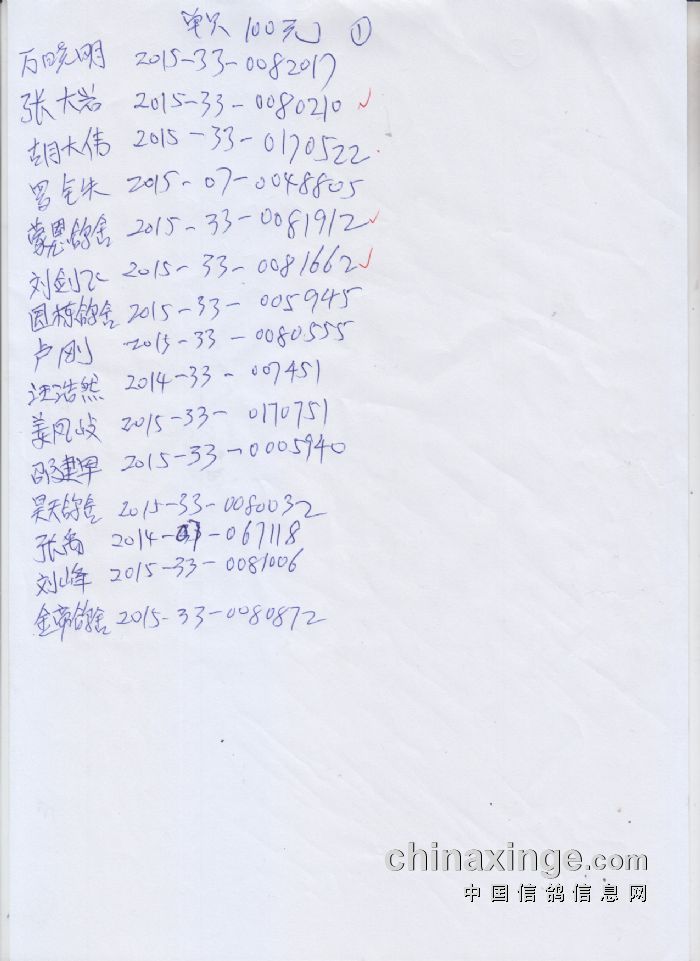 单只 100元 ①
万晓明 2015-33-0082017
张大岩 2015-33-0080210 ✓
胡大伟 2015-33-0170522
罗金朱 2015-07-0048805
蒙恩鸽舍 2015-33-0081912 ✓
刘剑飞 2015-33-0081662 ✓
圆栋鸽舍 2015-33-005945
卢刚 2015-33-0080555
汪浩然 2014-33-007451
姜凤岐 2015-33-0170751
邵建军 2015-33-0005940
昊天鸽舍 2015-33-0080032
张禹 2014-07-067118
刘峰 2015-33-0081006
金帝鸽舍 2015-33-0080872
chinaxinge.com
中国信鸽信息网